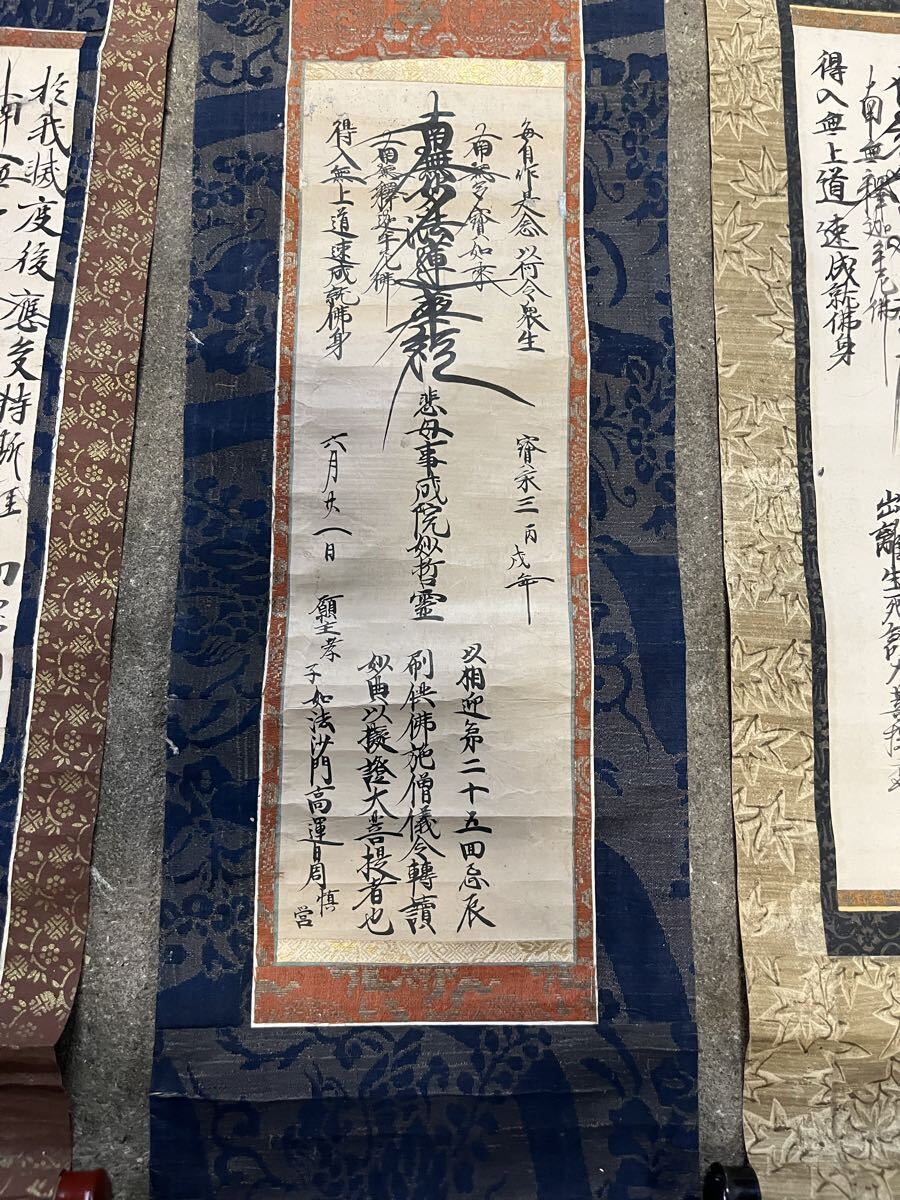 得入無上道速成就佛身
南無釋迦牟尼佛
出離生死證大菩提
毎自作是念以何令衆生
南無多寳如来
南無妙法蓮華経
南無釋迦牟尼佛
得入無上道速成就佛身
寳永三丙戌年
悲母事成院妙哲霊
六月廿八日
以相迎第二十五回忌辰
刷供佛施僧儀令轉讀
妙典以擬證大菩提者也
願主孝子如法沙門高運日周
慎営
於我滅度後應受持斯経
南無